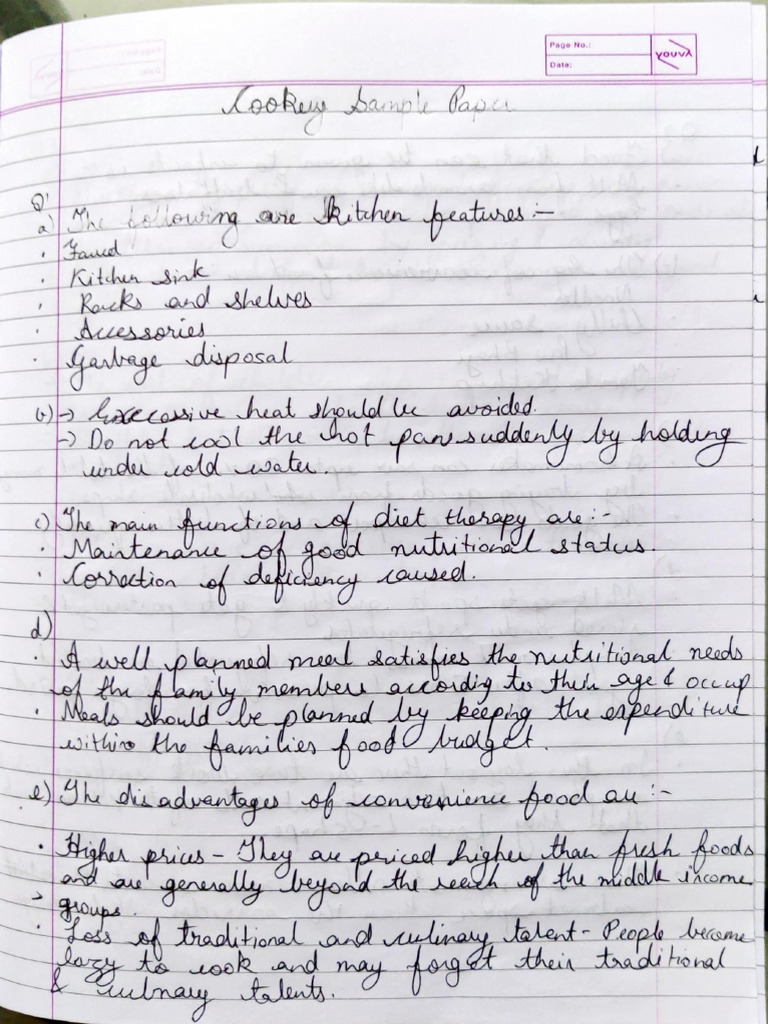 Page No.:
Date:
youva
Cookery Sample Paper
Q1
a) The following are kitchen features :-
· Faucet
· Kitchen sink
· Racks and shelves
· Accessories
· Garbage disposal
b) → Excessive heat should be avoided.
→ Do not cool the hot pan suddenly by holding
under cold water.
c) The main functions of diet therapy are :-
· Maintenance of good nutritional status.
· Correction of deficiency caused.
d)
· A well planned meal satisfies the nutritional needs
of the family members according to their age & occup
· Meals should be planned by keeping the expenditure
within the families food budget.
e) The disadvantages of convenience food are :-
· Higher prices - They are priced higher than fresh foods
and are generally beyond the reach of the middle income
groups.
· Loss of traditional and culinary talent - People become
lazy to cook and may forget their traditional
& culinary talents.